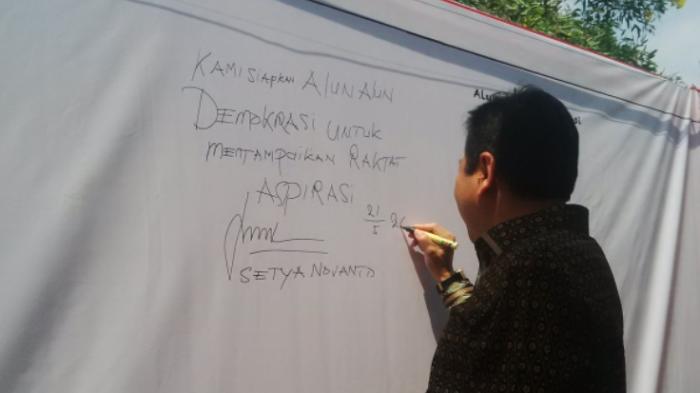 KAMI SIAPKAN ALUN ALUN
DEMOKRASI UNTUK
MENYAMPAIKAN RAKYAT
ASPIRASI
21
5
SETYA NOVANTO